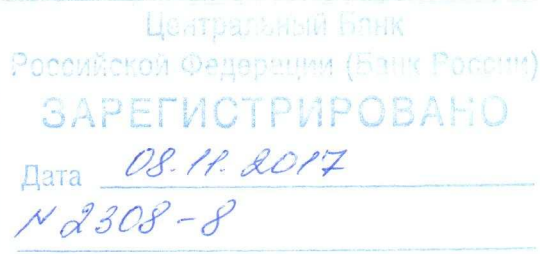 Центральный Банк
Российской Федерации (Банк России)
ЗАРЕГИСТРИРОВАНО
Дата 08.11.2017
N 2308-8